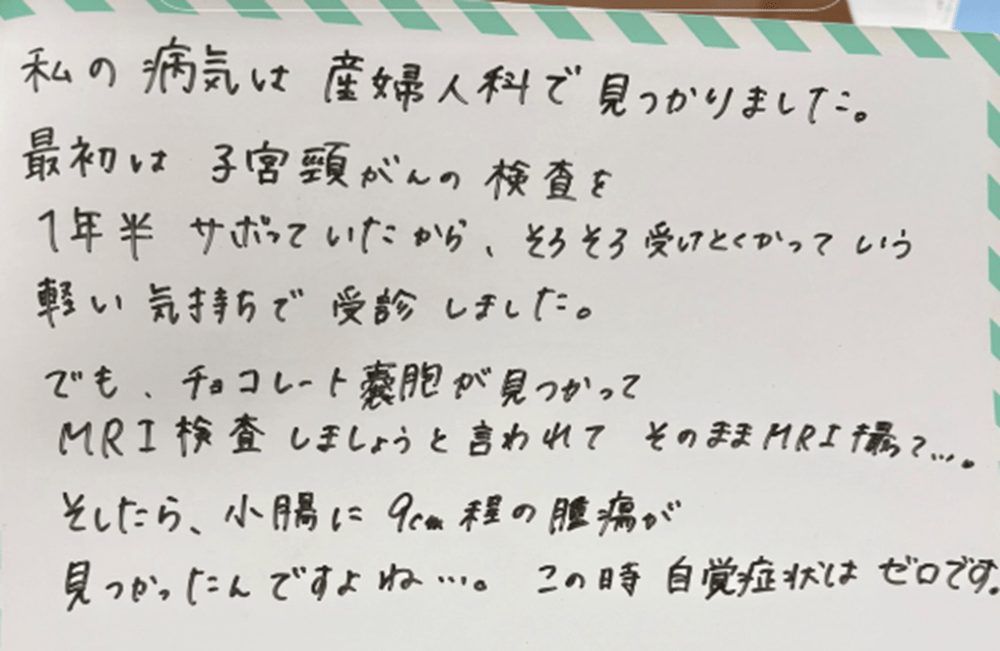 私の病気は産婦人科で見つかりました。
最初は子宮頸がんの検査を
1年半サボっていたから、そろそろ受けとくかっていう
軽い気持ちで受診しました。
でも、チョコレート嚢胞が見つかって
MRI検査しましょうと言われてそのままMRI撮って…。
そしたら、小腸に9cm程の腫瘍が
見つかったんですよね…。この時自覚症状はゼロです。